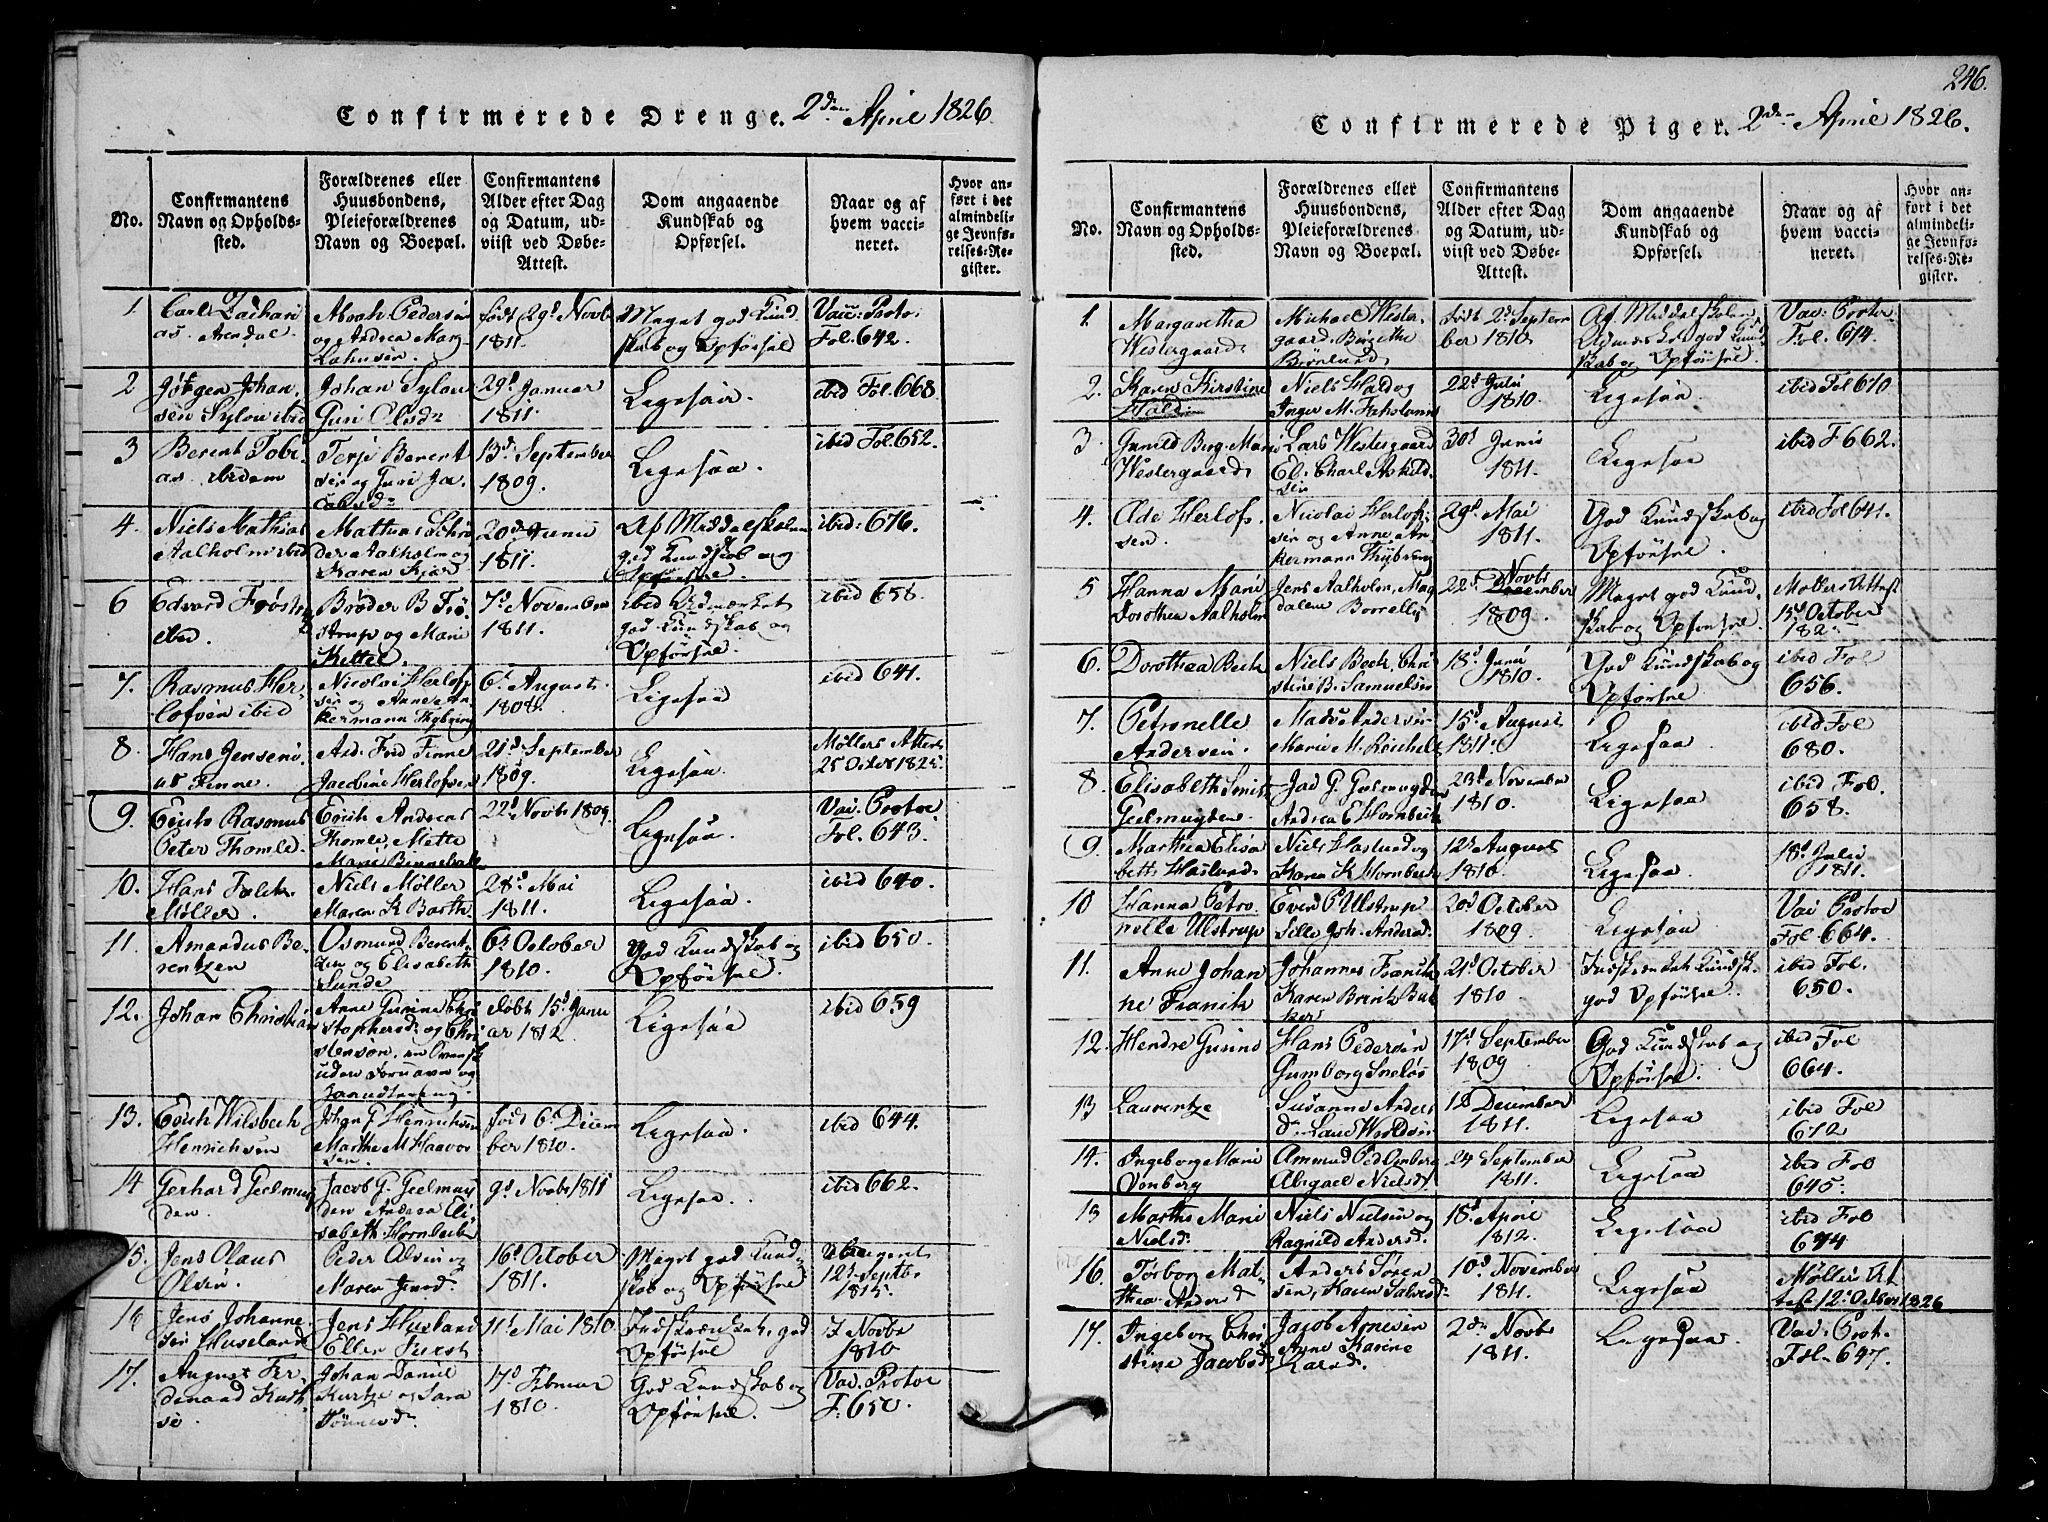 Confirmerede Drenge. 2den April 1826
No.
Confirmantens Navn og Opholdssted.
Forældrenes eller Huusbondens, Pleieforældrenes Navn og Boepæl.
Confirmantens Alder efter Dag og Datum, udviist ved Døbe-Attest.
Dom angaaende Kundskab og Opførsel.
Naar og af hvem vaccineret.
Hvor anført i det almindelige Jevnførelses-Register.
1.
Carl Zacharias Arendal.
og Andrea Marg.
født 29d Novb
1811.
Meget god Kundskab og Opførsel
Vac: Protoc
Fol. 642.
2
Jørgen Johansen Sylow ibid
Johan Sylow
Guri Olsd
29d Januar
1811.
Ligesaa.
ibid Fol. 668.
3
Berent Tobias ibidem
Terje Berentsen og Guri Jacobsd
13d September
1809.
Ligesaa.
ibid Fol. 652.
4.
Niels Mathias
Aalholm ibid
Mathias Schrøder Aalholm og
Karen
20d Juni
1811.
Af Middelskolen
god Kundskab og
Opførsel.
ibid: 676.
6
Edvard
ibid.
strup og Marie
Kittel.
7d November
1811.
ibid Udmærket
god Kundskab og
Opførsel
ibid 658.
7.
Rasmus Herlofsen ibid
Nicolai Herlofsen og Anne Ankermann Thybring
6d August
1808.
Ligesaa
ibid 641.
8
Hans Jensenius Finne.
Ard. Ferd Finne
Jacobine Herlofsen
21d September
1809.
Ligesaa.
Møllers Attest
25 October 182
9.
Erich Rasmus
Peter Thomle.
Erich Andreas
Thomle, Mette
Marie
22d Novb 1809.
Ligesaa.
Vac. Protoc
Fol. 643.
10.
Hans Falck
Møller.
Niels Møller
Maren K Barth.
28d Mai
1811.
Ligesaa.
ibid 640.
11.
Amandus Berentzen
Osmund Berentzen og Elisabeth
Lunde
6d October
1810.
God Kundskab og
Opførsel.
ibid 650.
12.
Johan Christian
Anne Gurine Christophersd og
uden Fornavn og
døbt 15d Januar 1812.
Ligesaa
ibid 659
13.
Erich Wilsbech
Henrichsen
Johan F Henrichsen
Marthe M Haavorsen.
født 6d December 1810.
Ligesaa.
ibid 644.
14
Gerhard Geelmuyden
Jacob G. Geelmuyden Andrea Elisabeth Hornbech
9d Novb 1811
Ligesaa.
ibid 662.
15.
Jens Olaus
Olsen.
Peder Olsen og
Maren Jensd.
16d October
1811.
Meget god Kundskab og Opførsel
12d Septb.
1815.
16
Jens Johannesen Huseland
Jens Huseland
Ellen
11d Mai 1810.
Indskrænket, god
Opførsel
7 Novb
1810
17.
August Ferdinand
Johan Daniel
og Sara
Tønnesd.
17d Februar
1810.
God Kundskab og
Opførsel
Vac. Protoc
F. 650.
246.
Confirmerede Piger. 2den April 1826.
No.
Confirmantens Navn og Opholdssted.
Forældrenes eller Huusbondens, Pleieforældrenes Navn og Boepæl.
Confirmantens Alder efter Dag og Datum, udviist ved Døbe-Attest.
Dom angaaende Kundskab og Opførsel.
Naar og af hvem vaccineret.
Hvor anført i det almindelige Jevnførelses-Register.
1.
Margaretha
Westergaard
Michael Westergaard. Birgithe
født 2d September 1810
Af Middelskolen
Udmærket god Kundskab og Opførsel
Vac: Protoc
Fol. 614.
2.
Karen Kirstine
Hald
Niels Hald og
Inger M.
22d Juli
1810.
Ligesaa.
ibid Fol 670
3
Gunild Berg. Marie
Westergaard
Lars Westergaard
El. Charl.
30d Junii
1811.
Ligesaa
ibid F 662.
4.
Ade Herlofsen.
Nicolai Herlofsen og Anne Ankermann Thybring
29d Mai
1811.
God Kundskab og
Opførsel.
ibid Fol 641.
5
Hanna Marie
Dorothea Aalholm
Jens Aalholm, Magdalene
22d Novb December
1809.
Meget god Kundskab og Opførsel.
Møllers Attest
15d October
182
6.
Dorothea Bech
Niels Bech. Christine B. Samuelsen
18d Juni
1810.
God Kundskab og
Opførsel
ibid Fol
656.
7.
Petronelle
Andersen.
Mads Andersen
Marie M.
15d August
1811.
Ligesaa
ibid Fol
680.
8.
Elisabeth Smith
Geelmuyden
Jac G. Geelmuyden
Andrea E Hornbech
23d November
1810.
Ligesaa
ibid Fol.
658.
9.
Marthea Elisabeth Haslund
Niels Haslund og
Karen K Hornbech
12d August
1810.
Ligesaa
18d Julii
1811.
10
Hanna Petronelle Ulstrup
Even P Ulstrup
Sille Joh. Andersd.
20d October
1809
Ligesaa
Vac Protoc
Fol. 664.
11.
Anne Johanne Franck
Johannes Franck
Karen
21d October
1810.
god Opførsel.
ibid Fol.
650.
12.
Hendre Gurine
Hans Pedersen
Gumborg
17d September
1809
God Kundskab og
Opførsel.
ibid Fol
664.
13
Laurentze
Susanne Andersd.
18 December
1811.
Ligesaa
ibid Fol
672
14.
Ingeborg Marie
Omberg
Ammund Ped Omberg
Abigael Nielsd
24 September
1811.
Ligesaa
ibid Fol
645.
13
Marthe Marie
Nielsd.
Niels Nielsen og
Ragnild Andersd.
18d April
1812.
Ligesaa
ibid Fol
674
16.
Torborg Mathea Andersd
Anders Sørensen, Karen Salvesd
10d November
1811.
Ligesaa
Møllers Attest 12d October 1826
17.
Ingeborg Christine Jacobsd
Jacob Arnesen
Anne Karine
Larsd.
2den Novb
1811.
Ligesaa.
Vac: Prot.
Fol. 647.